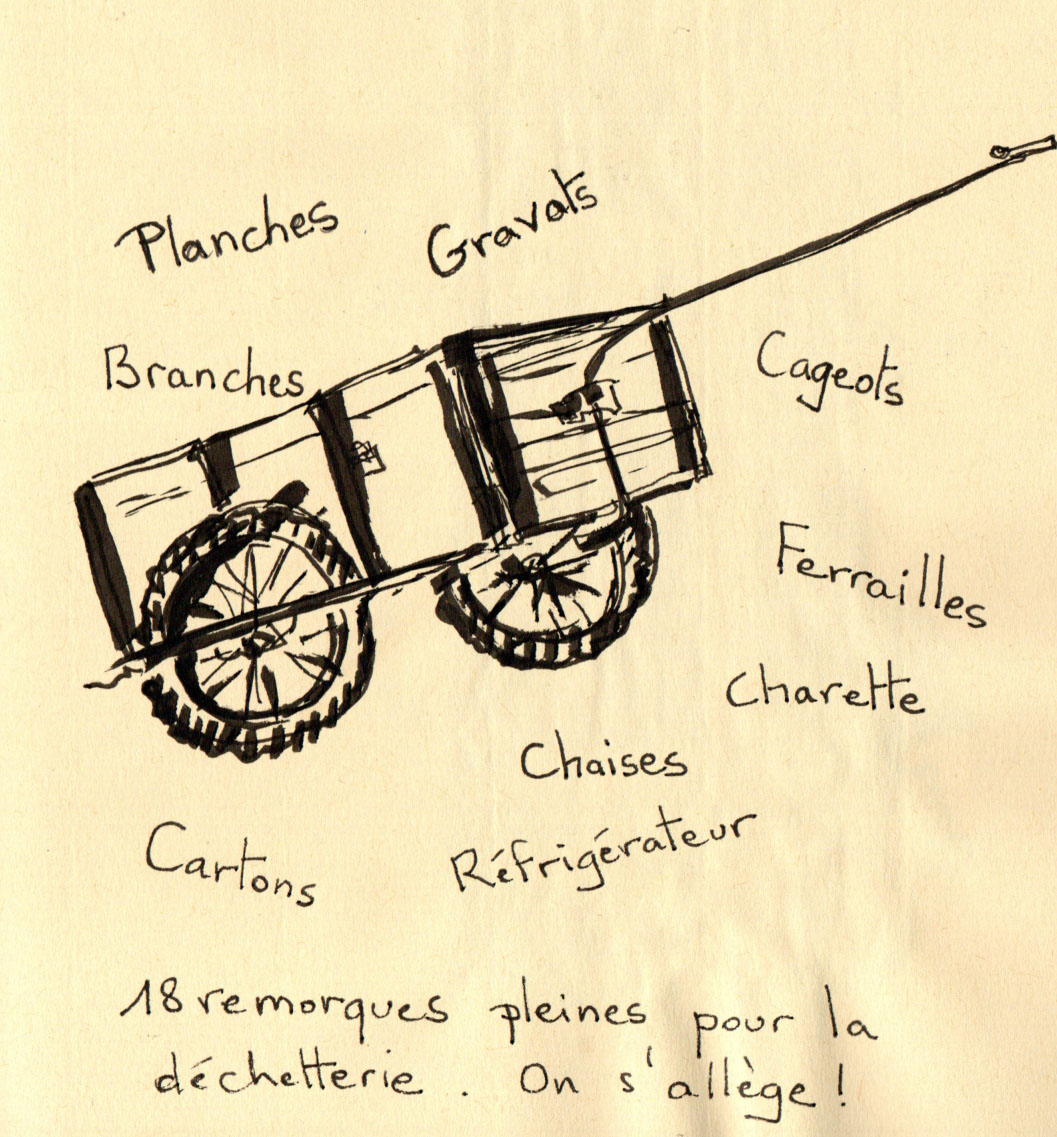 Planches
Gravats
Branches
Cageots
Ferrailles
Charette
Chaises
Cartons
Réfrigérateur
18 remorques pleines pour la
déchetterie. On s'allège !